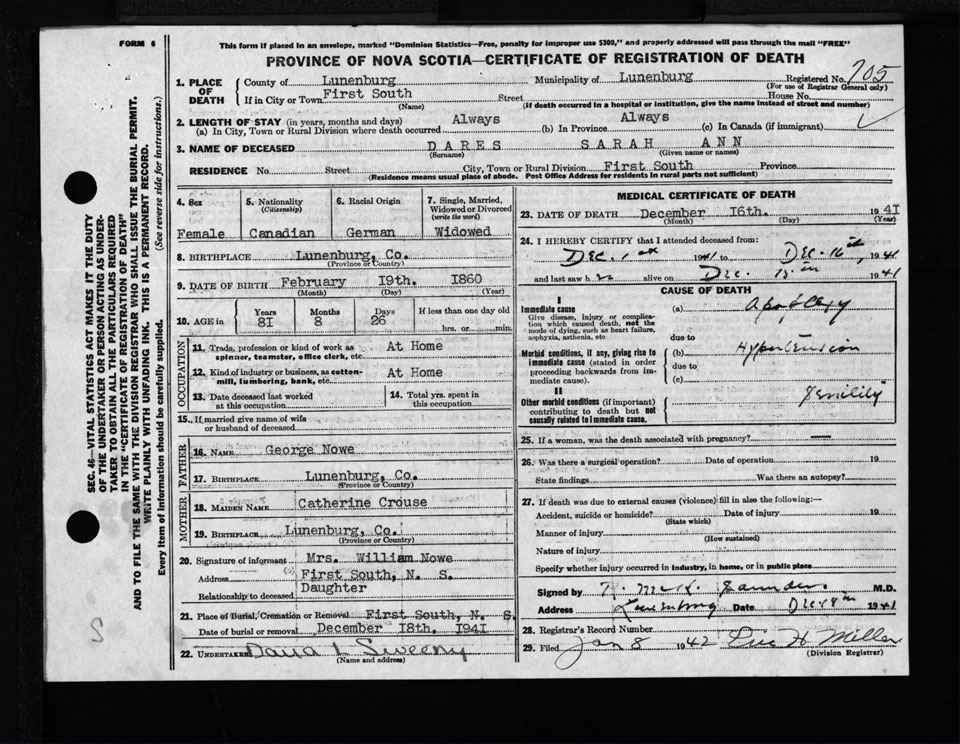 FORM 6
This form if placed in an envelope, marked "Dominion Statistics—Free, penalty for improper use $300," and properly addressed will pass through the mail "FREE"
PROVINCE OF NOVA SCOTIA—CERTIFICATE OF REGISTRATION OF DEATH
1. PLACE OF DEATH
County of Lunenburg Municipality of Lunenburg Registered No. 705
(For use of Registrar General only)
If in City or Town First South Street House No.
(Name) (If death occurred in a hospital or institution, give the name instead of street and number)
2. LENGTH OF STAY (in years, months and days)
(a) In City, Town or Rural Division where death occurred Always (b) In Province Always (c) In Canada (if immigrant)
3. NAME OF DECEASED DARES SARAH ANN
(Surname) (Given name or names)
RESIDENCE No. Street City, Town or Rural Division First South Province
(Residence means usual place of abode. Post Office Address for residents in rural parts not sufficient)
4. Sex
Female
5. Nationality
(Citizenship)
Canadian
6. Racial Origin
German
7. Single, Married, Widowed or Divorced
(write the word)
Widowed
8. BIRTHPLACE Lunenburg, Co.
(Province or Country)
9. DATE OF BIRTH February 19th. 1860
(Month) (Day) (Year)
10. AGE in
Years Months Days If less than one day old
81 8 26 hrs. or min.
OCCUPATION
11. Trade, profession or kind of work as spinner, teamster, office clerk, etc. At Home
12. Kind of industry or business, as cotton-mill, lumbering, bank, etc. At Home
13. Date deceased last worked at this occupation
14. Total yrs. spent in this occupation
15. If married give name of wife or husband of deceased
FATHER
16. NAME George Nowe
17. BIRTHPLACE Lunenburg, Co.
(Province or Country)
MOTHER
18. MAIDEN NAME Catherine Crouse
19. BIRTHPLACE Lunenburg, Co.
(Province or Country)
20. Signature of informant Mrs. William Nowe
Address First South, N. S.
Relationship to deceased Daughter
21. Place of Burial, Cremation or Removal First South, N. S.
Date of burial or removal December 18th. 1941
22. UNDERTAKER David L Sweeny
(Name and address)
MEDICAL CERTIFICATE OF DEATH
23. DATE OF DEATH December 16th. 1941
(Month) (Day) (Year)
24. I HEREBY CERTIFY that I attended deceased from:
Dec. 1st 1941 to Dec. 16th, 1941
and last saw h alive on Dec. 1941
CAUSE OF DEATH
I
Immediate cause
Give disease, injury or complication which caused death, not the mode of dying, such as heart failure, asphyxia, asthenia, etc
(a) Apoplexy
due to
Morbid conditions, if any, giving rise to immediate cause (stated in order proceeding backwards from immediate cause).
(b) Hypertension
due to
(c)
II
Other morbid conditions (if important) contributing to death but not causally related to immediate cause.
Senility
25. If a woman, was the death associated with pregnancy? —
26. Was there a surgical operation? Date of operation 19
State findings Was there an autopsy?
27. If death was due to external causes (violence) fill in also the following:—
Accident, suicide or homicide? Date of injury 19
(State which)
Manner of injury
(How sustained)
Nature of injury
Specify whether injury occurred in industry, in home, or in public place
Signed by R. McK. Saunders M.D.
Address Lunenburg Date Dec 18th 1941
28. Registrar's Record Number
29. Filed Jan 8 1942 H. Miller
(Division Registrar)
SEC. 46—VITAL STATISTICS ACT MAKES IT THE DUTY
OF THE UNDERTAKER OR PERSON ACTING AS UNDER-
TAKER TO OBTAIN ALL THE PARTICULARS REQUIRED
IN THE "CERTIFICATE OF REGISTRATION OF DEATH"
AND TO FILE THE SAME WITH THE DIVISION REGISTRAR WHO SHALL ISSUE THE BURIAL PERMIT.
WRITE PLAINLY WITH UNFADING INK. THIS IS A PERMANENT RECORD.
Every item of information should be carefully supplied. (See reverse side for instructions.)